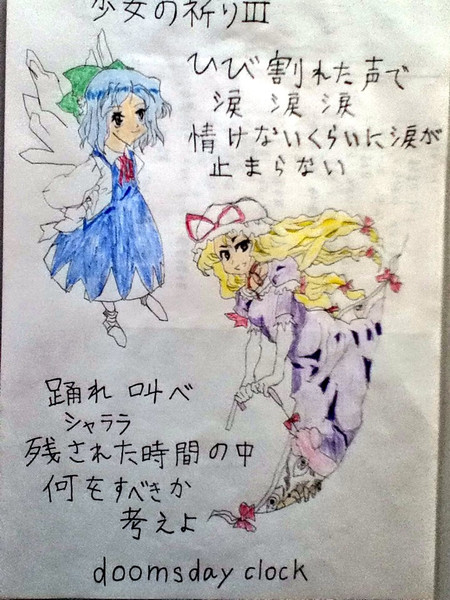 少女の祈りIII
ひび割れた声で
涙 涙 涙
情けないくらいに涙が
止まらない
踊れ 叫べ
シャララ
残された時間の中
何をすべきか
考えよ
doomsday clock